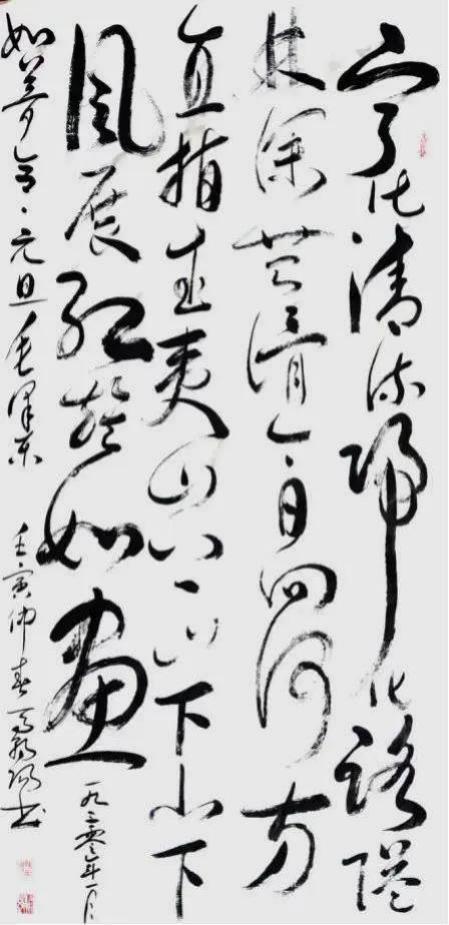 宁化清流歸化路隘
林深苔滑今日向何方
直指武夷山下山下山下
風展紅旗如畫 一九三零年一月
如夢令·元旦 毛澤東 壬寅仲春 書